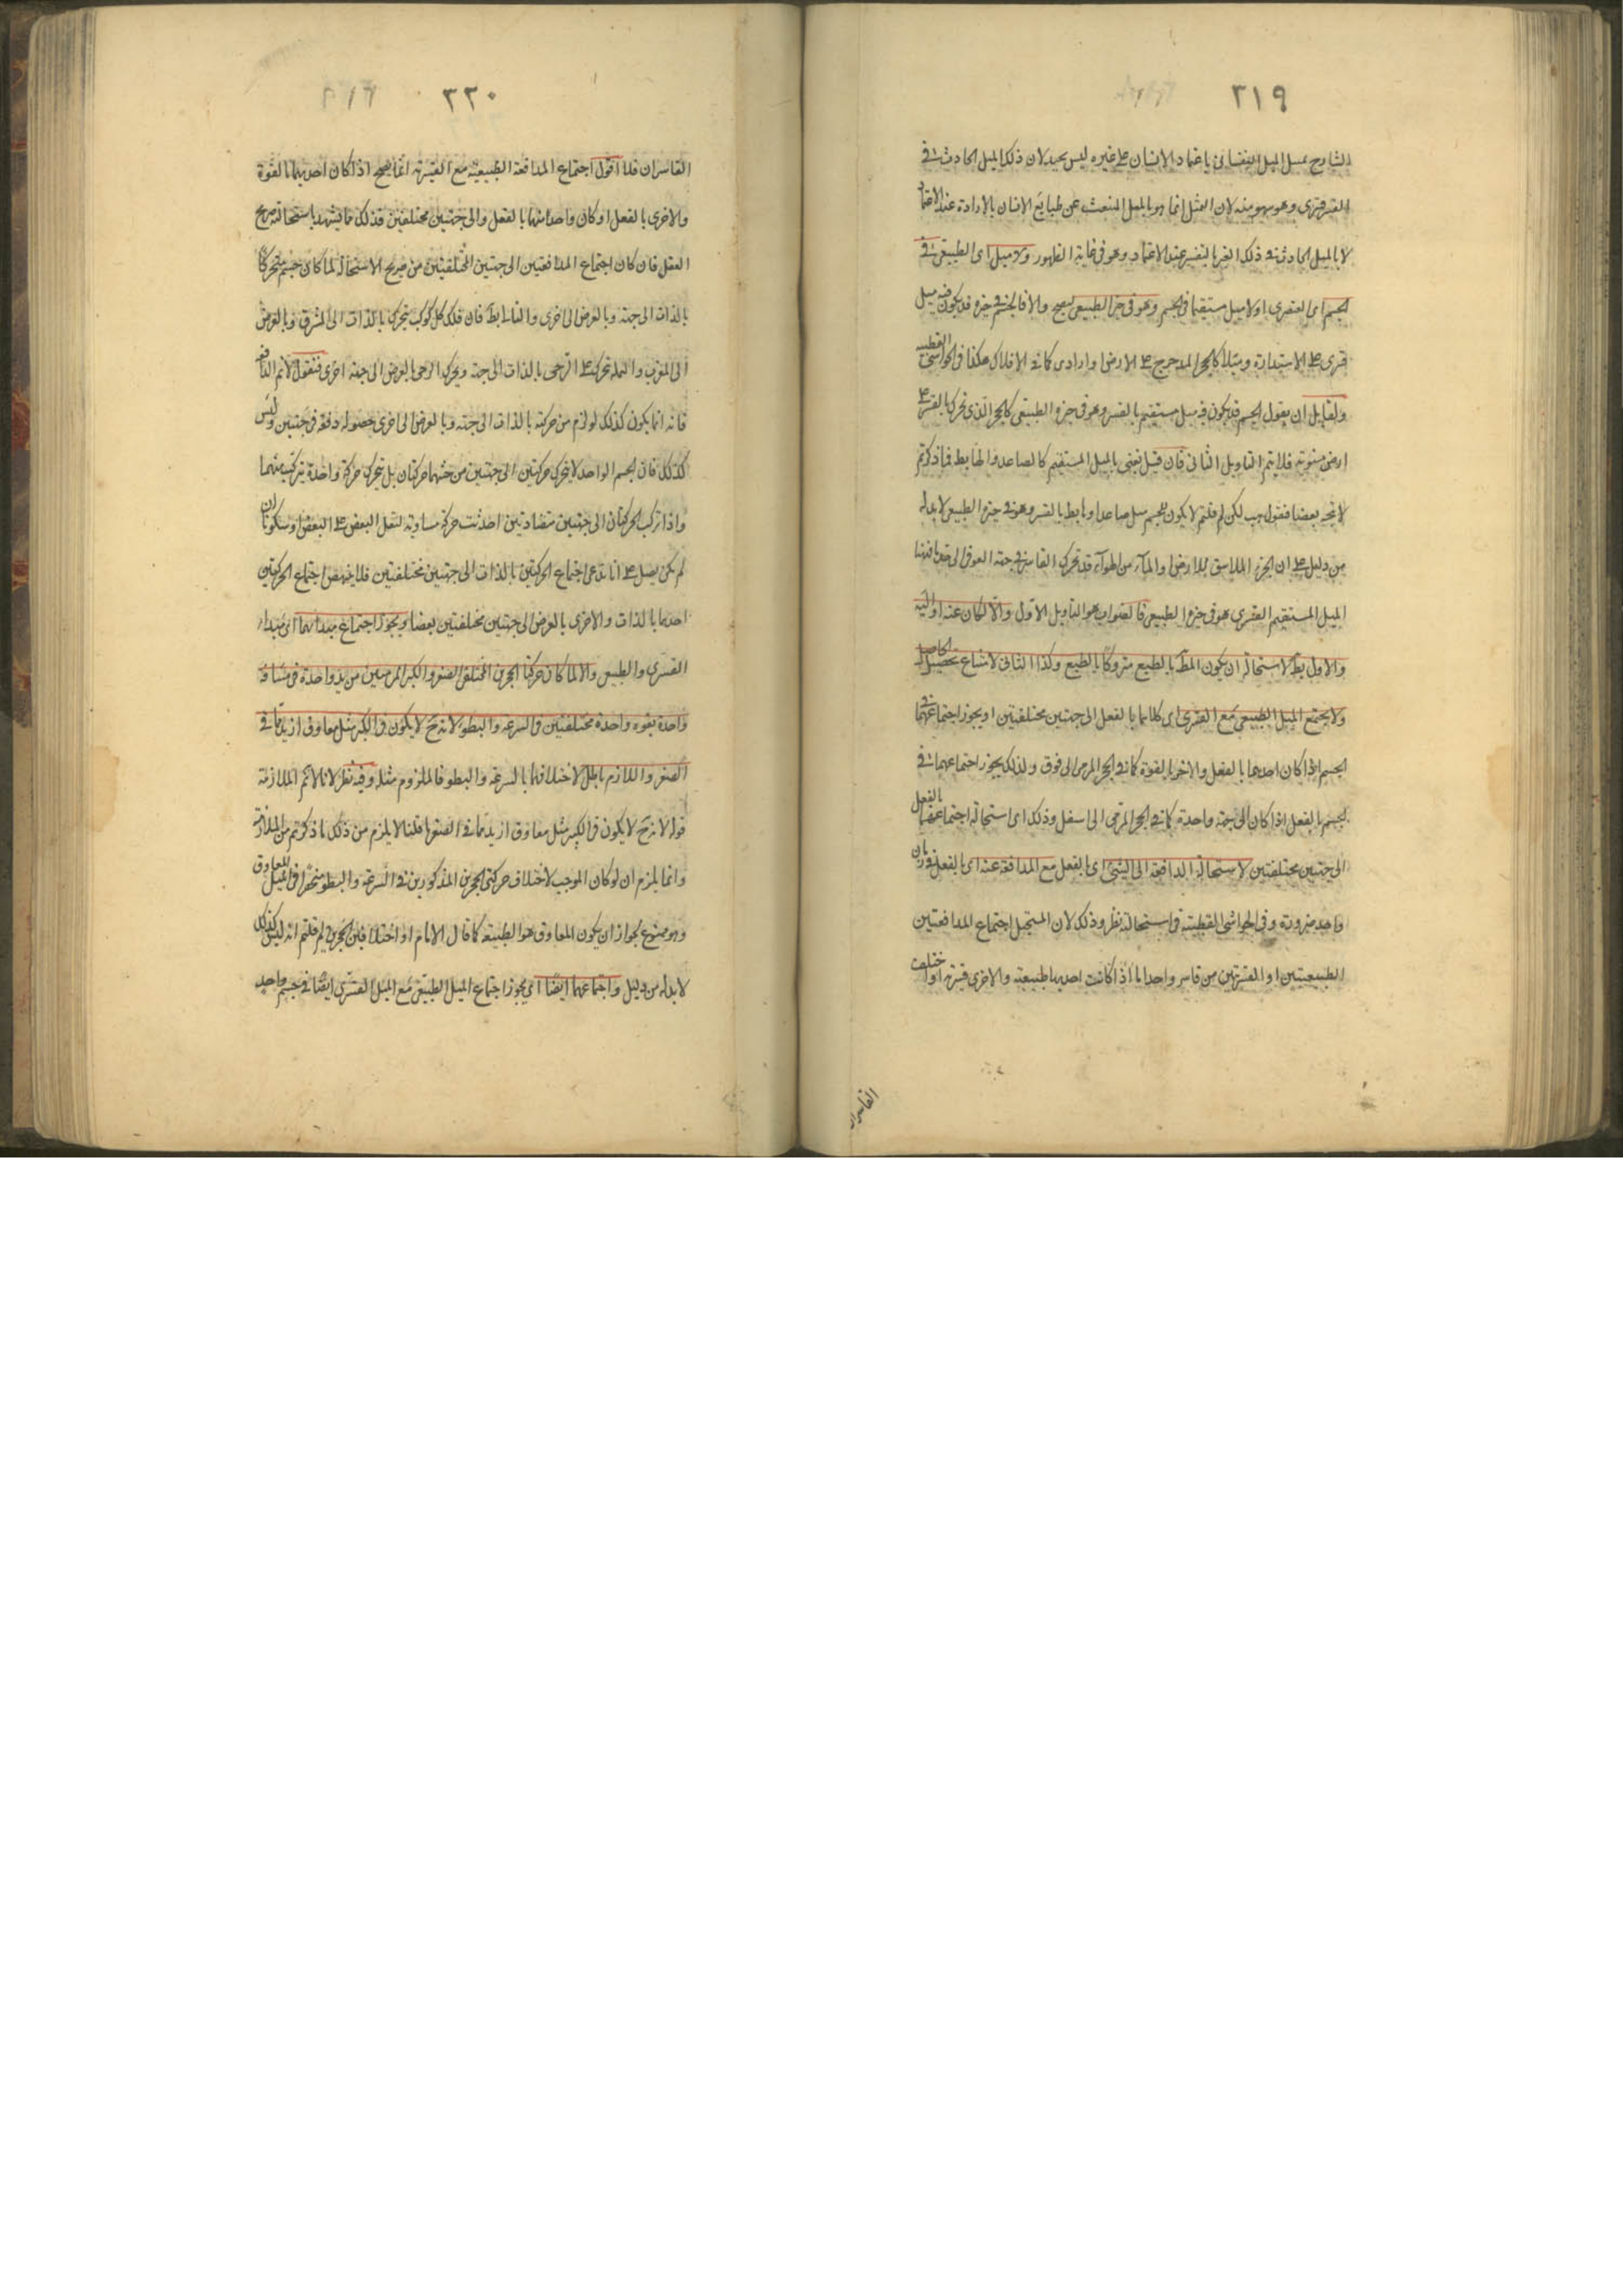 ٣١٩
الشارح ميل الميل النفسانى باعتماد الانسان على غيره ليس بجيد لان ذلك الميل الحادث فى
الغير قسرى وهو سهو منه لان التمثيل انما هو بالميل المنبعث عن طبايع الانسان بالارادة عند الاعتماد
لا بالميل الحادث فى ذلك الغير بالقسر عند الاعتماد وهو فى غاية الظهور ولا ميل اى الطبيعى فى
الجسم اى العنصرى او لا ميل مستقيما فى الجسم وهو فى حيزه الطبيعى ليصح والا فالجسم فى حيزه قد يكون فيه ميل
قسرى على الاستدارة كالحجر المدحرج على الارض او ارادى كما فى الافلاك هكذا فى الحواشى القطبية
ولقايل ان يقول الجسم قد يكون فيه ميل مستقيم بالقسر وهو فى حيزه الطبيعى كالحجر الذى تحرك بالقسر على
ارض مستوية فلا يتم التاويل الثانى فان قيل نعنى بالميل المستقيم كالصاعد والهابط فما ذكرتم
لا يتجه بعضا فنقول هب لكن لم قلتم لا يكون للجسم ميل صاعد او هابط بالقسر وهو فى حيزه الطبيعى لا بد له
من دليل على ان الجزء الملاصق للارض او الماء من الهواء قد تحرك القاسر فى جهة الفوق الى
الميل المستقيم القسرى هو فى حيزه الطبيعى فالصواب هو التاويل الاول والا لكان عنه او اليه
والاول بط لاستحالة ان يكون المط بالطبع متروكا بالطبع وكذا الثانى لامتناع تحصيل الحاصل
ولا يجتمع الميل الطبيعى مع القسرى اى كلاهما بالفعل الى جهتين مختلفتين او يجوز اجتماعهما فى
الجسم اذا كان احدهما بالفعل والاخر بالقوة كما فى الحجر المرمى الى فوق ولذلك يجوز اجتماعهما فى
الجسم بالفعل اذا كان الى جهة واحدة كما فى الحجر المرمى الى اسفل وذلك اى استحالة اجتماعهما بالفعل
الى جهتين مختلفتين لاستحالة المدافعة الى الشئ اى بالفعل مع المدافعة عنه اى بالفعل فى زمان
واحد ضرورة وفى الحواشى القطبية فى استحالته نظر وذلك لان المستحيل اجتماع المدافعتين
الطبيعيتين او القسريتين من قاسر واحد اما اذا كانت احديهما طبيعية والاخرى قسرية او اختلف
القاسران
٣٢٠
القاسران فلا اقول اجتماع المدافعة الطبيعية مع القسرية انما يصح اذا كان احديهما بالقوة
والاخرى بالفعل او كان واحد منهما بالفعل والى جهتين مختلفتين فذلك مما يشهد باستحالته صريح
العقل فان كان اجتماع المدافعتين الى جهتين المختلفتين من صريح الاستحالة لما كان جسم متحركا
بالذات الى جهة وبالعرض الى اخرى والتالى بط فان فلك كل كوكب يتحرك بالذات الى المشرق وبالعرض
الى المغرب والنملة تتحرك على الرحى بالذات الى جهة وتحرك الرحى بالعرض الى جهة اخرى فنقول لا نم
فانه انما يكون كذلك لو لزم من حركته بالذات الى جهة وبالعرض الى اخرى حصوله دفعة فى جهتين وليس
كذلك فان الجسم الواحد لا يتحرك حركتين الى جهتين من حيث هما حركتان بل يتحرك حركة واحدة يتركب منهما
واذا تركب الحركتان الى جهتين متضادتين احدثت حركة مساوية لفضل البعض على البعض او سكونا ان
لم يكن فضل على انا ندعى اجتماع الحركتين بالذات الى جهتين مختلفتين فلا ينهض اجتماع الحركتين
احدهما بالذات والاخرى بالعرض الى جهتين مختلفتين بعضا ويجوز اجتماع مبدائهما اى مبداء
القسرى والطبيعى والا لما كان حركتا الحجرين المختلفى الصغر والكبر المرميين من يد واحدة فى مسافة
واحدة بقوة واحدة مختلفتين فى السرعة والبطؤ لانه ح لا يكون فى الكبير مثل معاوق ازيد مما فى
الصغير واللازم باطل لاختلافهما بالسرعة والبطو فالملزوم مثله وفيه نظر لانا لا نم الملازمة
قوله لانه ح لا يكون فى الكبير مثل معاوق ازيد مما فى الصغير قلنا لا يلزم من ذلك ما ذكرتم من الملازمة
وانما يلزم ان لو كان الموجب لاختلاف حركتى الحجرين المذكورين فى السرعة والبطو منحصرا فى الميل المعاوق
وهو ممنوع لجواز ان يكون المعاوق هو الطبيعة كما قال الامام او اختلاف الحجرين لم قلتم انه ليس كذلك
لا بد له من دليل واجتماعهما ايضا اى يجوز اجتماع الميل الطبيعى مع الميل القسرى ايضا فى جسم واحد